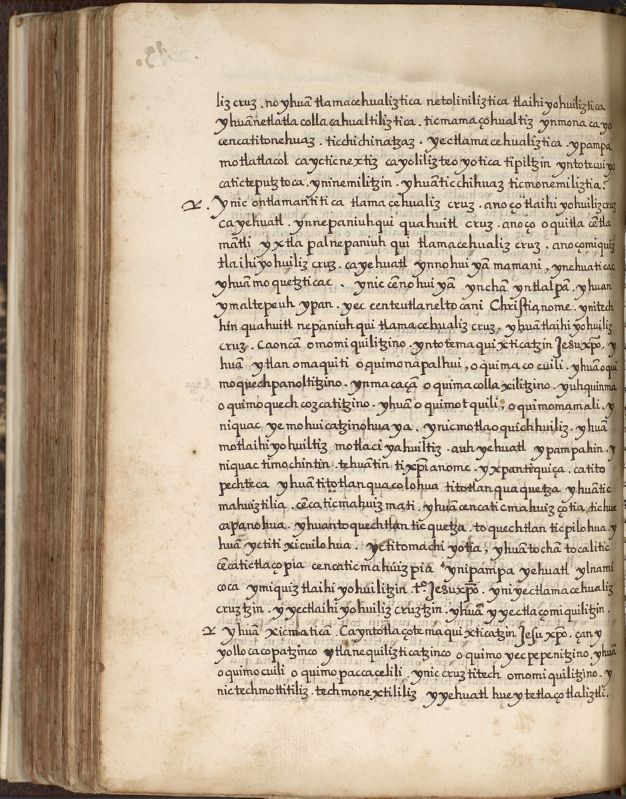 liz cruz. no yhuā tlamacehualiztica netoliniliztica tlaihiyohuiliztica
yhuā netlātlacollacahualtiliztica. ticmamaçohualtiz ynmonacayo
cencatitonehuaz. ticchichinatzaz. yectlamacehualiztica ypampa
motlatlacol caycticnextiz cayolilizteoyotica tipiltzin yntotecuiyo
catictepuztoca. yninemilitzin. yhuāticchihuaz ticmonemiliztia.
Ynic ontlamantititica tlamaçehualiz cruz. anoço tlaihiyohuilizcruz
cayehuatl. ynnepaniuhqui quahuitl cruz. anoço oquitla cētla
mātli yxtlapalnepaniuhqui tlamacehualiz cruz. anoçomiquiz
tlaihiyohuiliz cruz. cayehuatl ynnohuiyā mamani, ynehuaticac
yhuā moquetzticac. ynic cēnohuiyā ynchā yntlalpā. yhuan
ymaltepeuh ypan. yec centeutlaneltocani Christianome. ynitech
hin quahuitl nepaniuhqui tlamacehualiz cruz, yhuātlaihiyohuiliz
cruz. Caoncā omomiquilitzino. yntotemaquixticatzin Jesuxpō. y
huā ytlan omaquiti oquimonapalhui, oquimacocuili. yhuāoqui
moquechpanoltitzino. ynmacaçā oquimacollaxilitzino. yuhquinma
oquimoquechcozcatitzino. yhuā oquimotquili, oquimomamali. y
niquac yemohuicatzinohuaya. ynicmotlaoquichhuiliz. yhuā
motlaihiyohuiltiz motlaciyahuiltiz. auh yehuatl ypampahin. y
niquac timochintin. tehuātin tixpīanome. yxpantiquiça. catito
pechteca yhuā titotlanquacolohua titotlanquaquetza yhuātic
mahuiztilia. cēcaticmahuizmati. yhuā cencaticmahuizçotia, tichue
capanohua. yhuantoquechtlan ticquetza. toquechtlan ticpilohua. y
huā yctiti xicuilohua. yctitomachiyotia, yhuātochā tocalitic
cēcatictlaçopia cencaticmahuizpia ynipampa yehuatl ylnami
coca ymiquiztlaihiyohuilitzin. tº Jesuxpō. yniyectlamacehualiz
cruztzin. yyectlaihiyohuiliz cruztzin. yhuā yyectlaçomiquilitzin.
Yhuā xicmaticā. Cayntotlaçotemaquixticatzin Jesuxpō. çan y
yollocacopatzinco ytlanequilizticatzinco oquimoyecpepenitzino. yhuā
oquimocuili oquimopaccacelili. ynic cruztitech omomiquilitzino. y
nictechmottitiliz. techmonextililiz yyehuatl hueytetlaçotlaliztli.